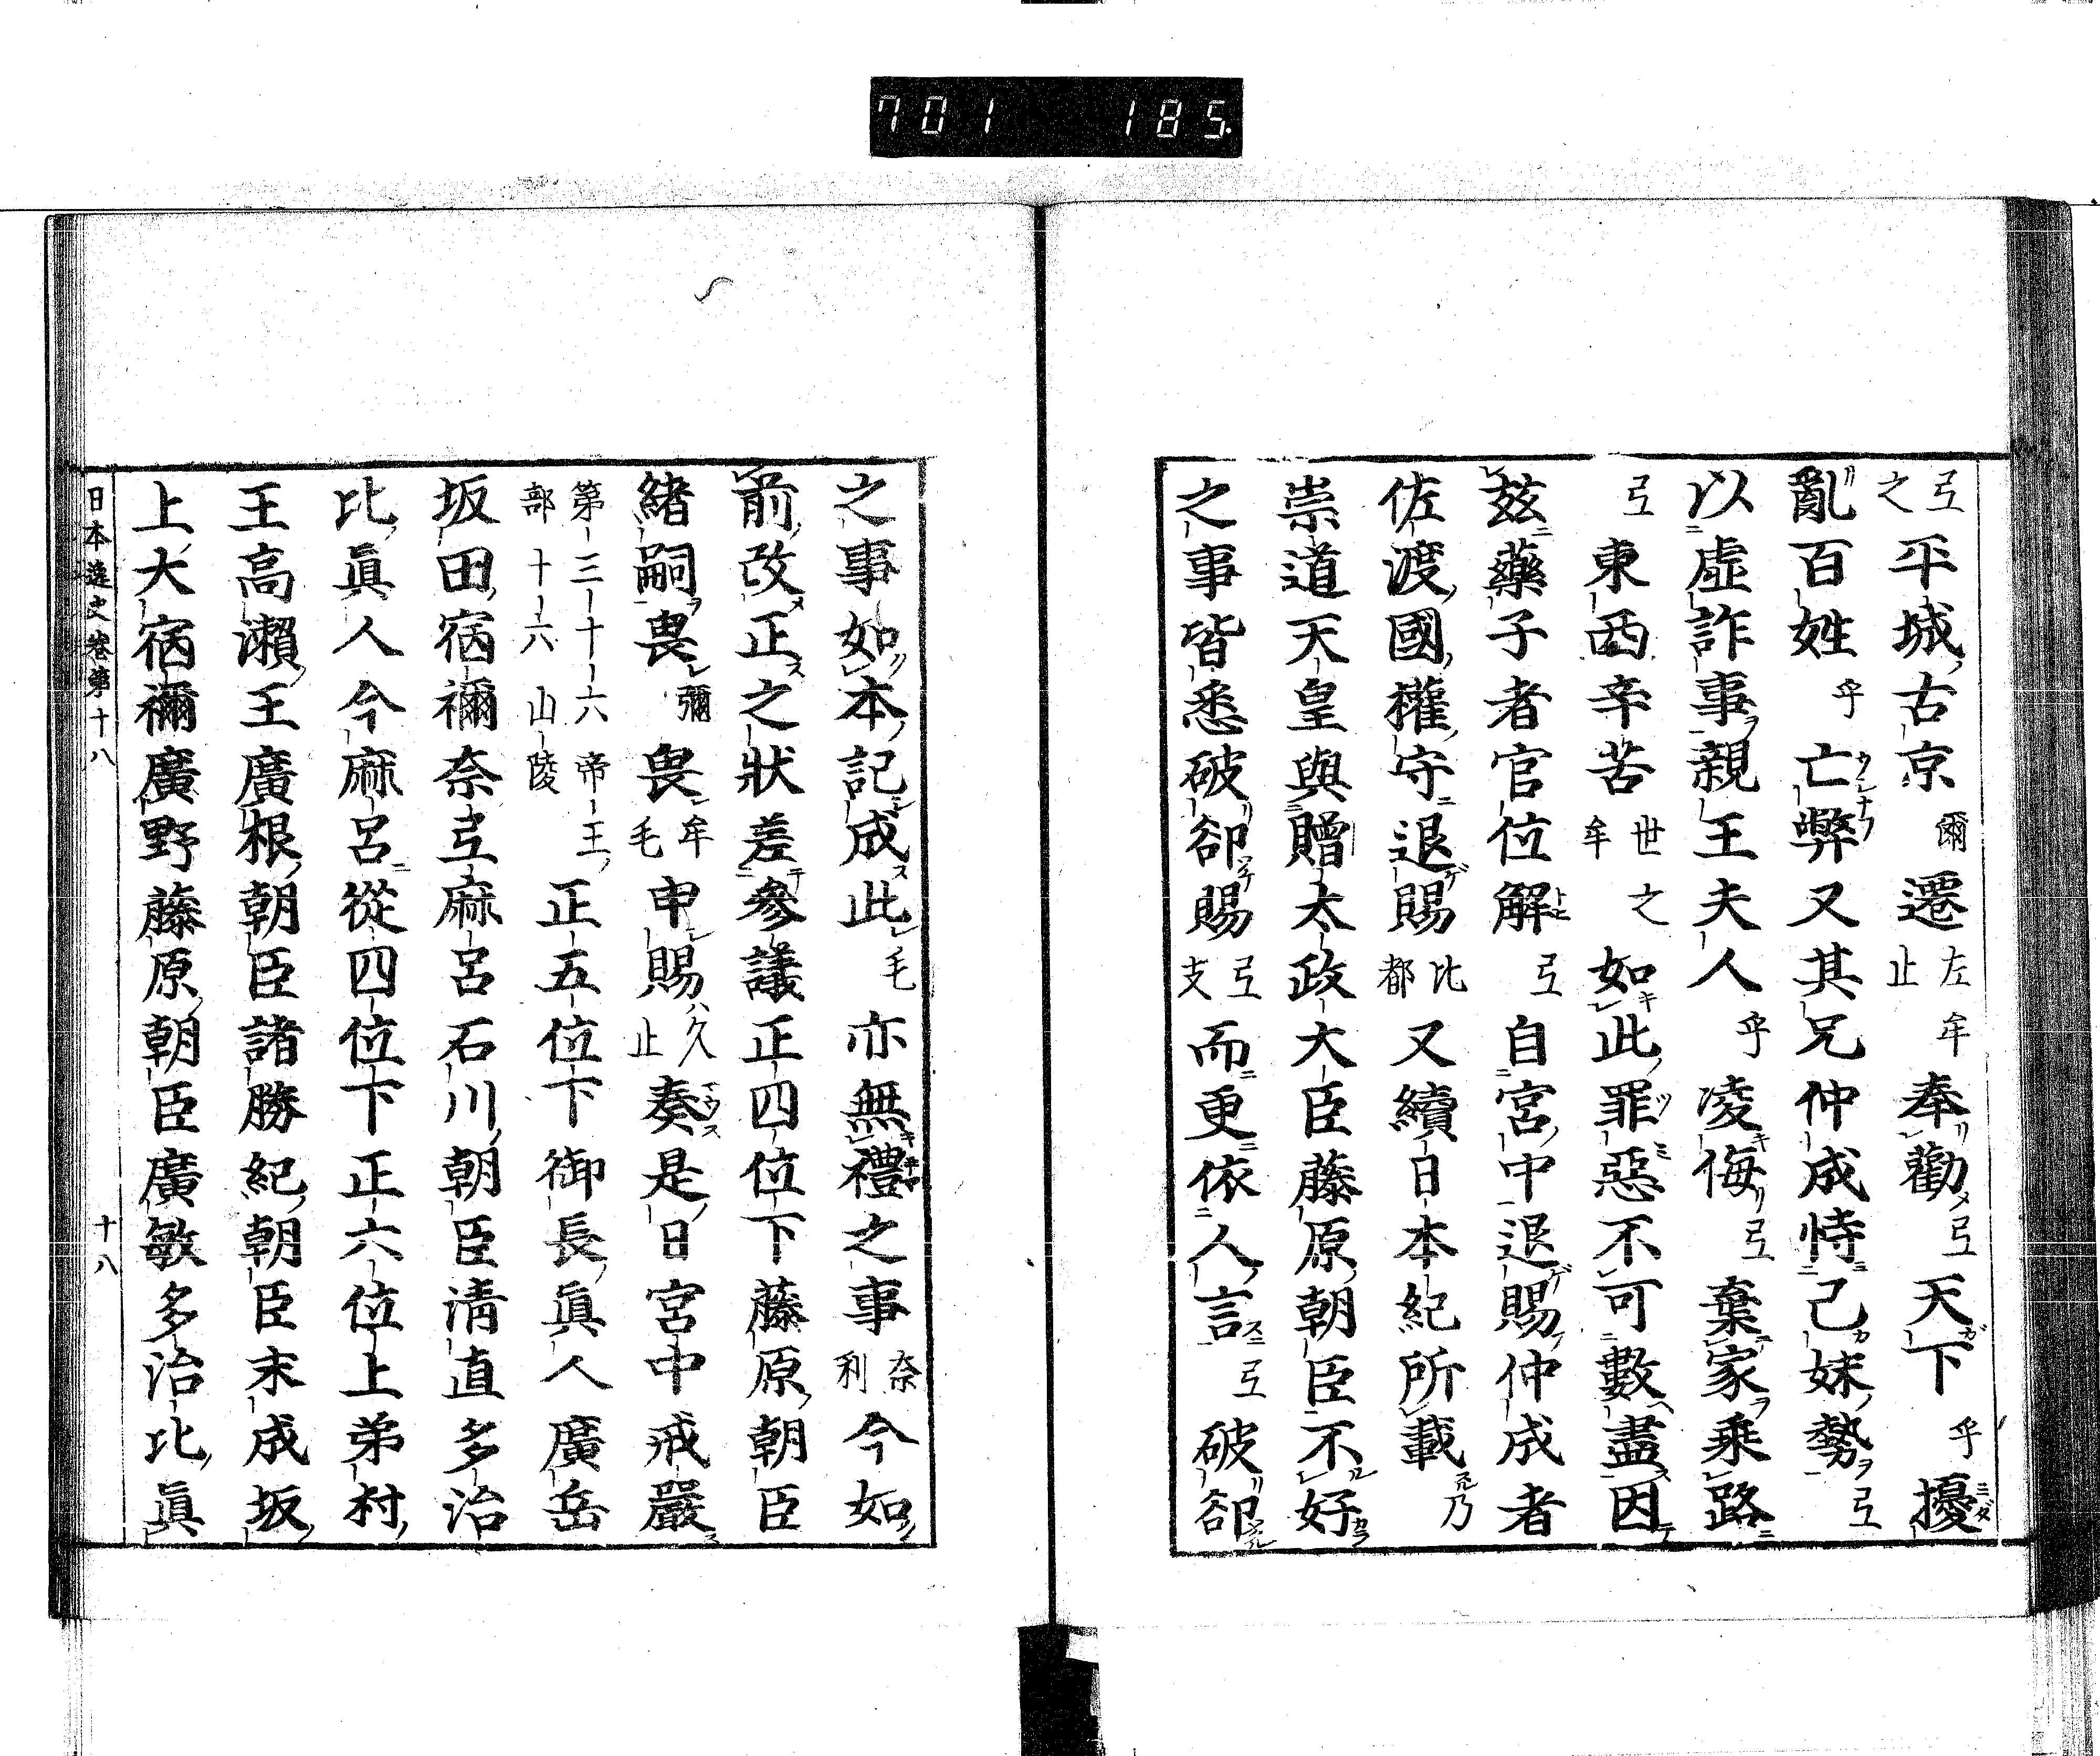 701 185.
弖之平城古京爾遷左止牟奉勸弖天下乎擾
亂百姓乎亡弊又其兄仲成恃己妹勢弖
以虛詐事親王夫人乎凌侮弖棄家乘路
弖東西辛苦世牟之如此罪惡不可數盡因
玆藥子者官位解弖自宮中退賜仲成者
佐渡國權守退賜比都又續日本紀所載乃
崇道天皇與贈太政大臣藤原朝臣不好
之事皆悉破卻賜弖支而更依人言弖破卻
之事如本記成此毛亦無禮之事奈利今如
前改正之狀差參議正四位下藤原朝臣
緒嗣畏彌畏牟毛申賜久止奏是日宮中戒嚴
第三十六帝王部十六山陵正五位下御長眞人廣岳
坂田宿禰奈弖麻呂石川朝臣淸直多治
比眞人今麻呂從四位下正六位上弟村
王高瀨王廣根朝臣諸勝紀朝臣末成坂
上大宿禰廣野藤原朝臣廣敏多治比眞
日本逸史卷第十八 十八